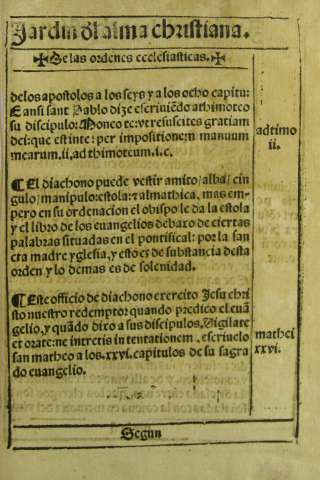 Jardin ďl alma christiana.
✠De las ordenes ecclesiasticas.✠
delos apostolos a los seys y a los ocho capitu:
E ansi sant Pablo dize escriuiẽdo a thimoteo
su discipulo: Moneo te: vt resuscites gratiam
dei: que est in te: per impositionem manuum
mearum. ii. ad thimoteum. i. c.
ad timo
ii.
¶ El diachono puede vestir amito/alba/cin
gulo/manipulo: estola: ⁊ almathica, mas em
pero en su ordenacion el obispo le da la estola
y el libro de los euangelios debaxo de ciertas
palabras situadas en el pontifical: por la san
cta madre yglesia, y esto es de substancia desta
orden y lo demas es de solenidad.
¶ Este officio de diachono exercito Jesu chri
sto nuestro redemptor: quando predico el euã
gelio, y quãdo dixo a sus discipulos. Vigilate
et orate: ne intretis in tentationem. escriuelo
san matheo a los. xxvi. capitulos de su sagra
do euangelio.
mathei
xxvi.
Segun